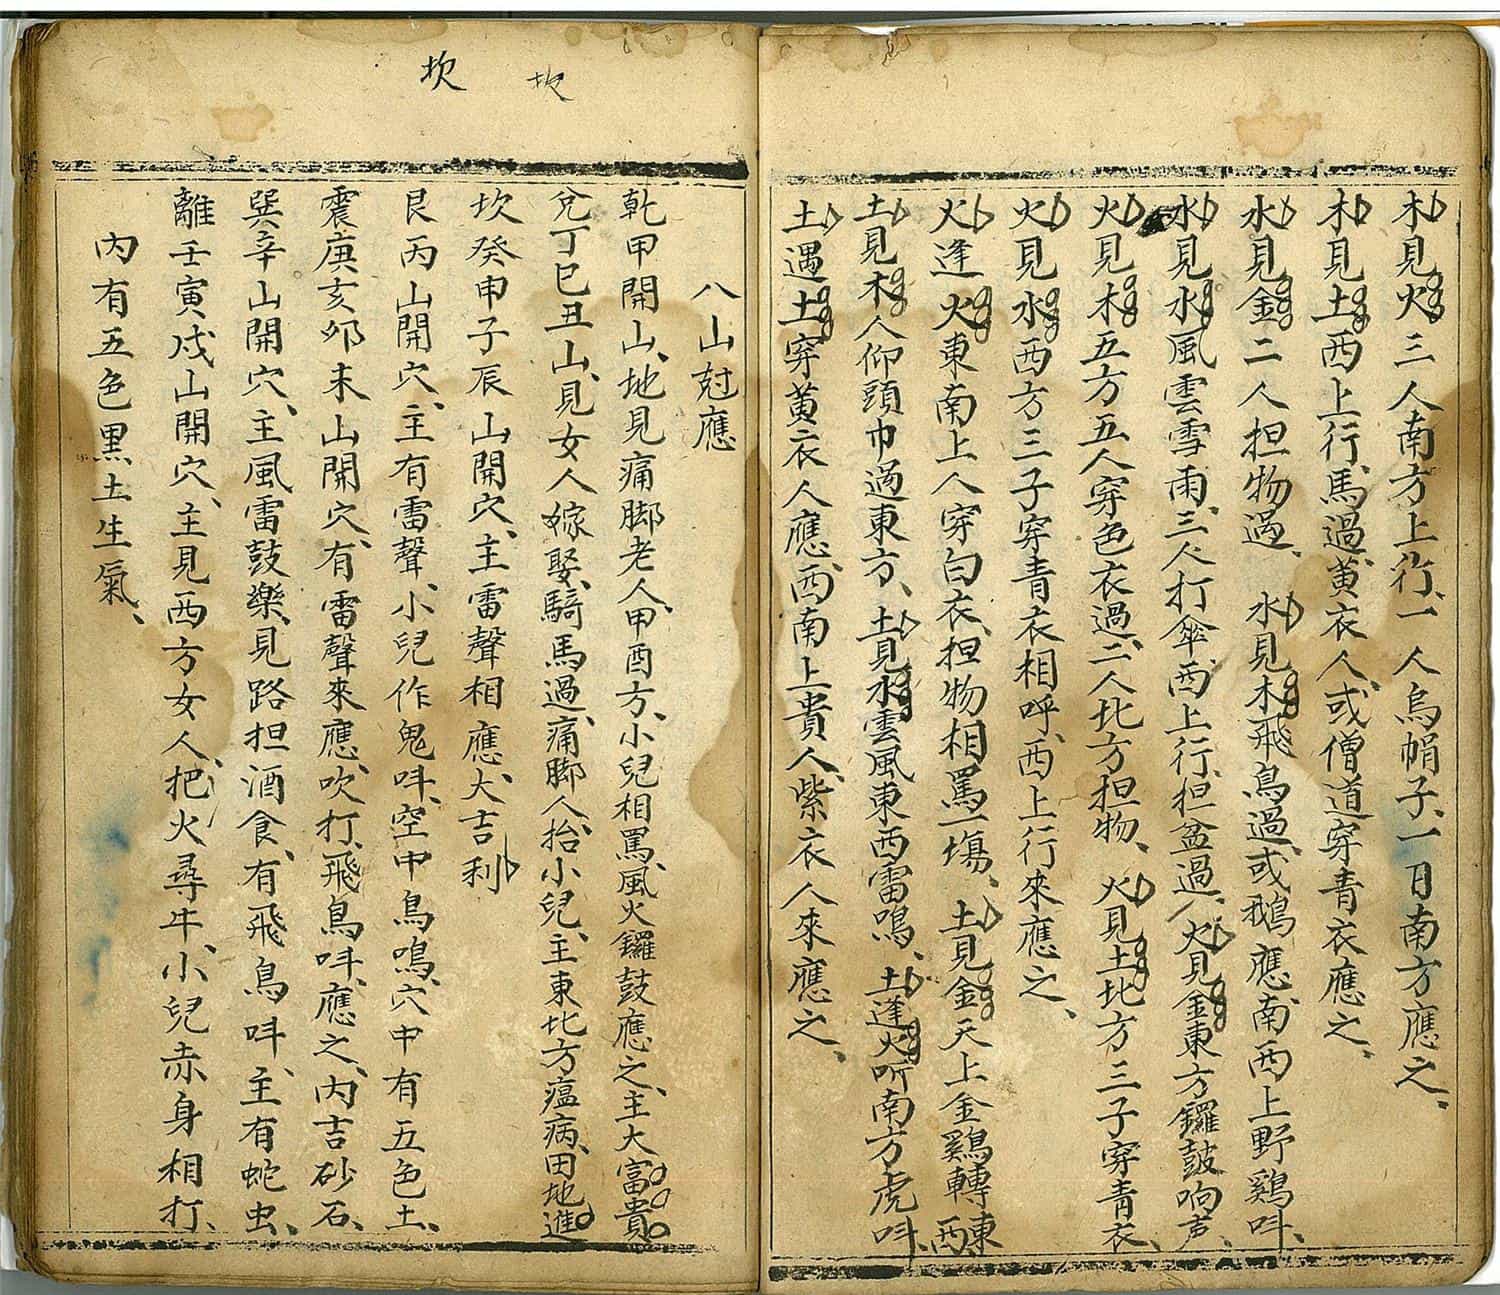 木見火三人南方上行、一人烏帽子、一日南方應之、
木見土西上行、馬過、黃衣人、或僧道穿青衣應之、
水見金二人担物過、水見木飛鳥過、或鵝應、南西上野鷄呌、
水見水風雲雪雨、三人打傘西上行、担盆過、火見金東方鑼鼓响声、
火見木五方五人穿色衣過、二人北方担物、火見土北方三子穿青衣、
火見水西方三子穿青衣相呼、西上行來應之、
火逢火東南上人穿白衣、担物相罵一塲、土見金天上金鷄轉東西、
土見木人仰頭巾過東方、土見水雲風東西雷鳴、土逢火听南方虎呌、
土遇土穿黃衣人應、西南上貴人、紫衣人來應之、
坎 坎
八山尅應
乾甲開山、地見痛脚老人、甲酉方、小兒相罵、風火鑼鼓應之、主大富貴
兌丁巳丑山、見女人嫁娶、騎馬過、痛脚人、抬小兒、主東北方瘟病、田地進
坎癸申子辰山開穴、主雷聲相應、大吉利
艮丙山開穴、主有雷聲、小兒作鬼呌、空中鳥鳴、穴中有五色土、
震庚亥卯未山開穴、有雷聲來應、吹打、飛鳥呌、應之、內吉砂石、
巽辛山開穴、主風雷鼓樂、見路担酒食、有飛鳥呌、主有蛇虫、
離壬寅戌山開穴、主見西方女人、把火尋牛、小兒赤身相打、
內有五色黑土生氣、